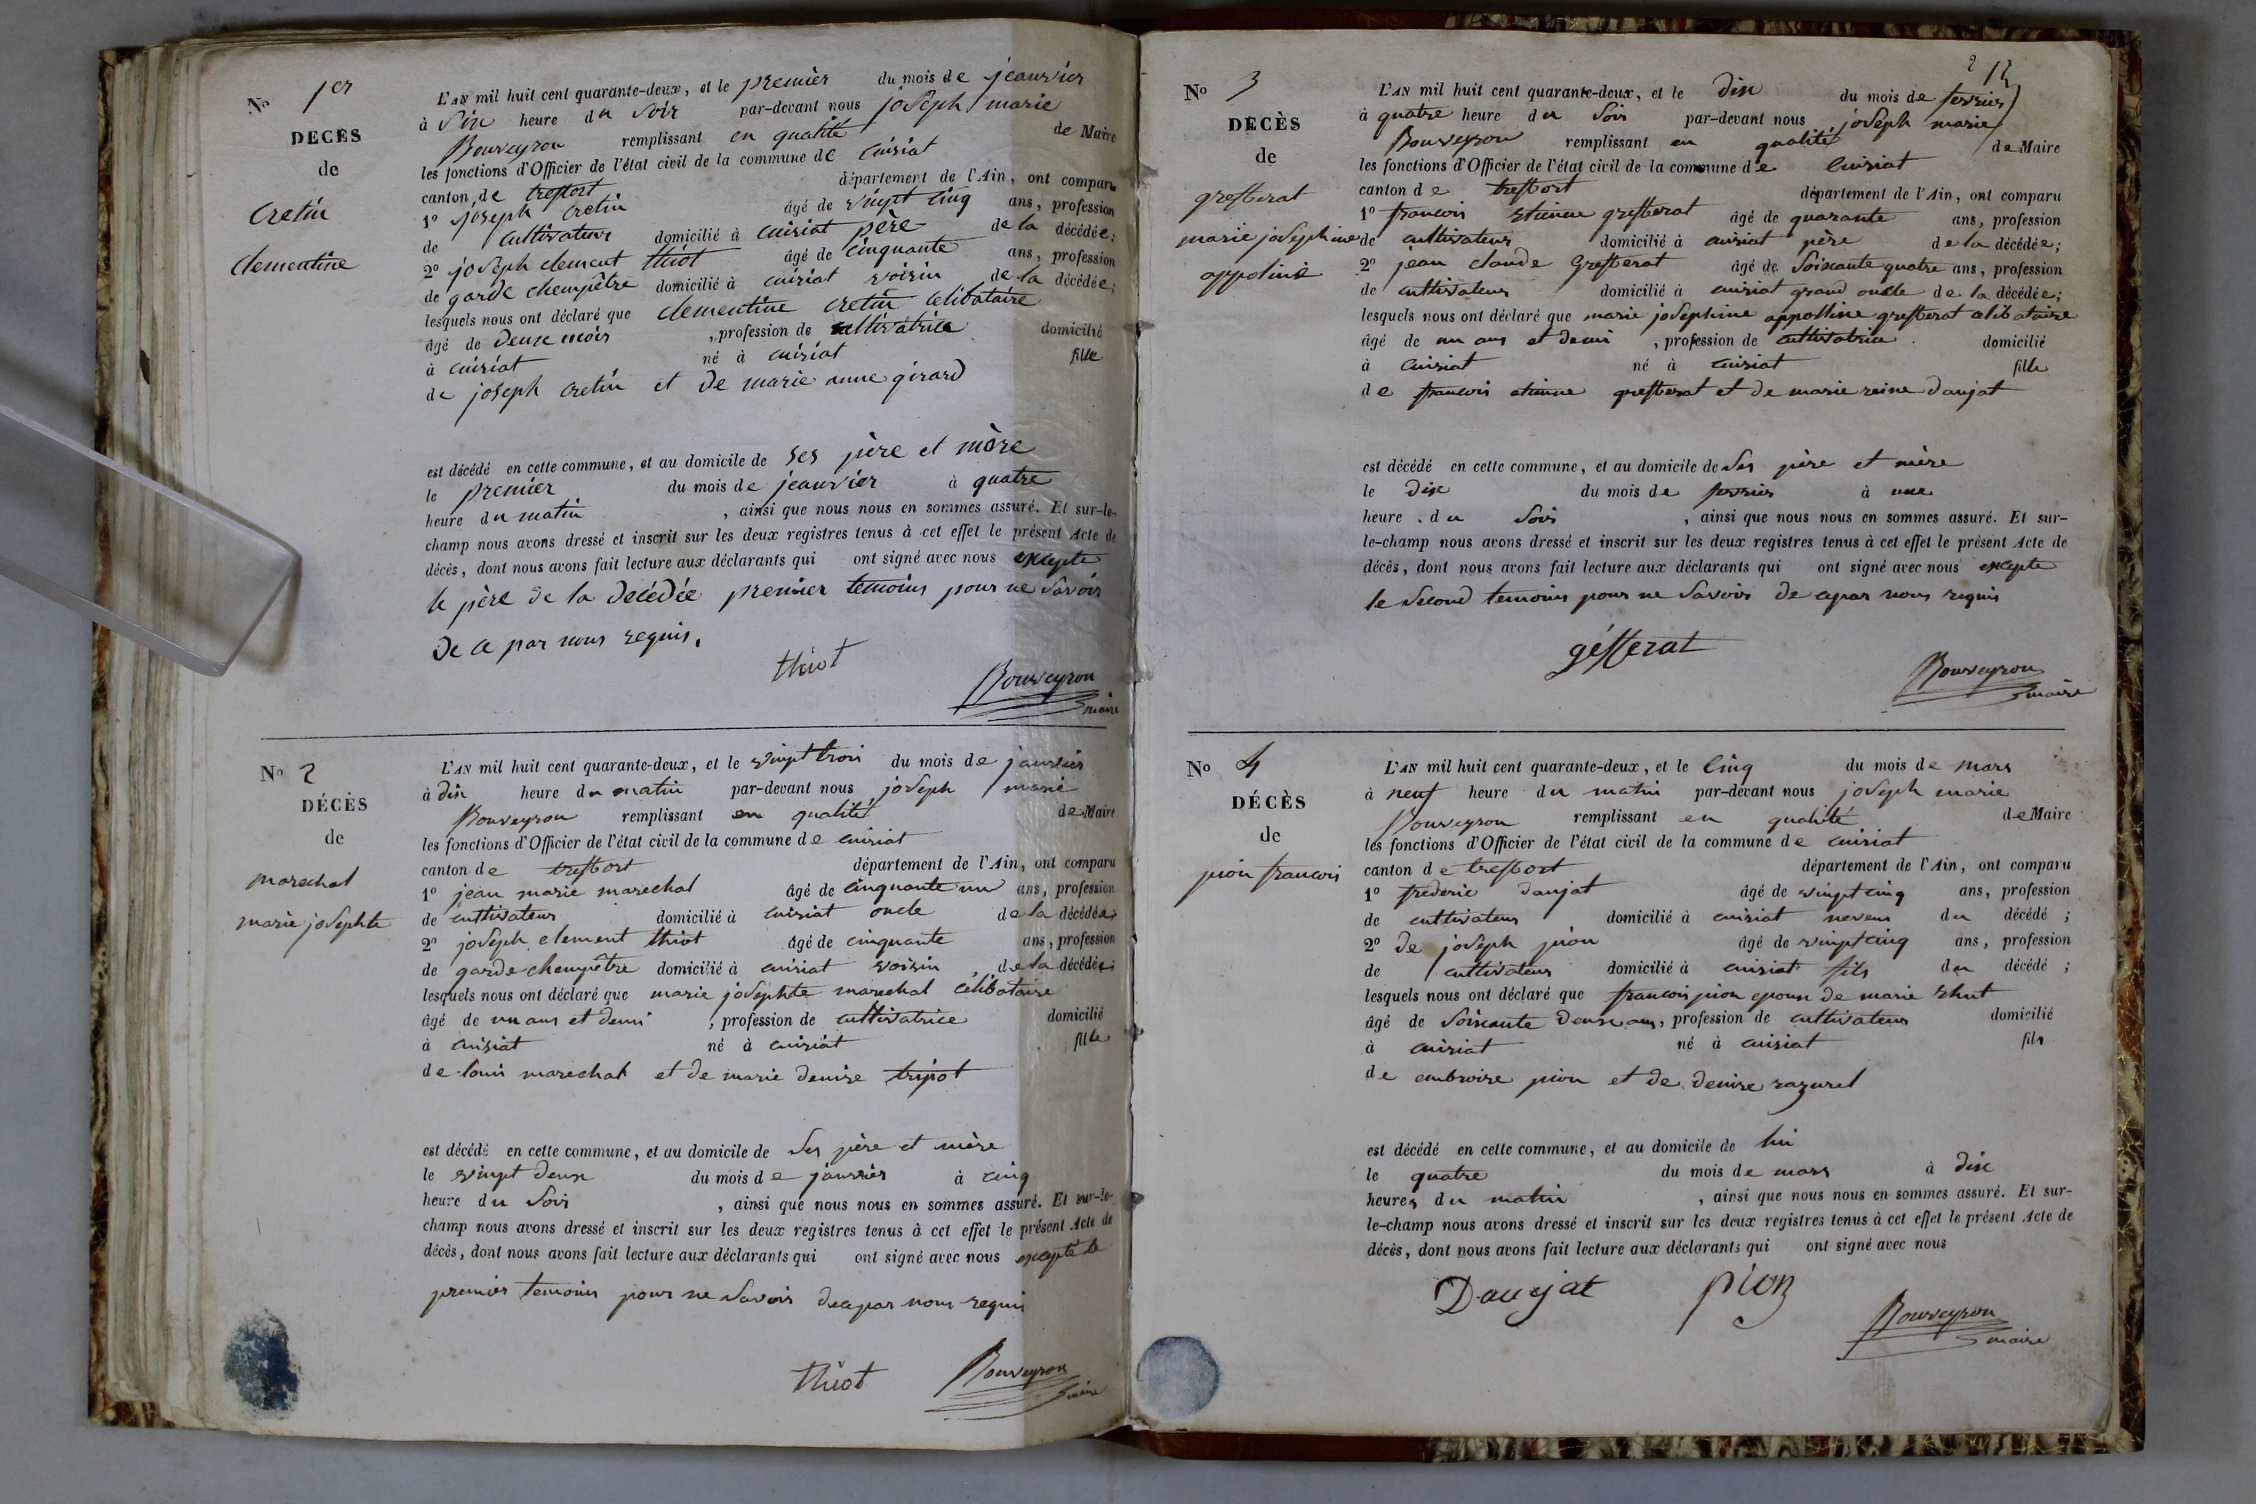 No 1er
DÉCÈS
de
Cretin
Clementine
L'AN mil huit cent quarante-deux, et le premièr du mois de jeanvier
à Six heure du Soir par-devant nous joseph marie
Bouveyron remplissant en qualité de Maire
les fonctions d'Officier de l'état civil de la commune de cuisiat
canton de treffort département de l'Ain, ont comparu
1o joseph cretin âgé de vingt cinq ans, profession
de cultivateur domicilié à cuisiat père de la décédée;
2o joseph clement thiot âgé de cinquante ans, profession
de garde chempêtre domicilié à cuisiat voisin de la décédée;
lesquels nous ont déclaré que clementine cretin celibataire
âgé de deux mois , profession de cultivatrice domicilié
à cuisiat né à cuisiat fille
de joseph cretin et de marie anne girard
est décédé en cette commune, et au domicile de ses père et mère
le premier du mois de jeanvier à quatre
heure du matin , ainsi que nous nous en sommes assuré. Et sur-le-
champ nous avons dressé et inscrit sur les deux registres tenus à cet effet le présent Acte de
décès, dont nous avons fait lecture aux déclarants qui ont signé avec nous excepte
le père de la decédée premier temoins pour ne savoir
de ce par nous requis.
thiot
Bouveyron
maire
No 2
DÉCÈS
de
marechal
marie josephte
L'AN mil huit cent quarante-deux, et le vingt trois du mois de janvier
à dix heure du matin par-devant nous joseph marie
Bouveyron remplissant en qualité de Maire
les fonctions d'Officier de l'état civil de la commune de cuisiat
canton de treffort département de l'Ain, ont comparu
1o jean marie marechal âgé de cinquante un ans, profession
de cultivateur domicilié à cuisiat oncle de la décédée;
2o joseph clement thiot âgé de cinquante ans, profession
de garde chempêtre domicilié à cuisiat voisin de la décédée;
lesquels nous ont déclaré que marie josephte marechal célibataire
âgé de un ans et demi , profession de cultivatrice domicilié
à cuisiat né à cuisiat fille
de louis marechal et de marie denise tripot
est décédé en cette commune, et au domicile de ses père et mère
le vingt deux du mois de janvier à cinq
heure du soir , ainsi que nous nous en sommes assuré. Et sur-le-
champ nous avons dressé et inscrit sur les deux registres tenus à cet effet le présent Acte de
décès, dont nous avons fait lecture aux déclarants qui ont signé avec nous excepté le
premier temoins pour ne savoir de ce par nous requis
thiot
Bouveyron
maire
2
No 3
DÉCÈS
de
grefferat
marie josephine
appoline
L'AN mil huit cent quarante-deux, et le dix du mois de fevrier
à quatre heure du soir par-devant nous joseph marie
Bouveyron remplissant en qualité de Maire
les fonctions d'Officier de l'état civil de la commune de Cuisiat
canton de treffort département de l'Ain, ont comparu
1o francois etienne grefferat âgé de quarante ans, profession
de cultivateur domicilié à cuisiat père de la décédée;
2o jean claude Grefferat âgé de soixante quatre ans, profession
de cultivateur domicilié à cuisiat grand oncle de la décédée;
lesquels nous ont déclaré que marie josephine appolline grefferat celibataire
âgé de un ans et demi , profession de cultivatrice domicilié
à Cuisiat né à cuisiat fille
de francois etienne grefferat et de marie reine daujat
est décédé en cette commune, et au domicile de ses père et mère
le dix du mois de fevrier à une
heure du soir , ainsi que nous nous en sommes assuré. Et sur-
le-champ nous avons dressé et inscrit sur les deux registres tenus à cet effet le présent Acte de
décès, dont nous avons fait lecture aux déclarants qui ont signé avec nous excepte
le second temoins pour ne savoir de ce par nous requis
géfferat
Bouveyron
maire
No 4
DÉCÈS
de
pion francois
L'AN mil huit cent quarante-deux, et le cinq du mois de mars
à neuf heure du matin par-devant nous joseph marie
Bouveyron remplissant en qualité de Maire
les fonctions d'Officier de l'état civil de la commune de cuisiat
canton de treffort département de l'Ain, ont comparu
1o frederic daujat âgé de vingt cinq ans, profession
de cultivateur domicilié à cuisiat neveux du décédé ;
2o de joseph pion âgé de vingt cinq ans, profession
de cultivateur domicilié à cuisiat fils du décédé ;
lesquels nous ont déclaré que francois pion epoux de marie
âgé de soixante deux ans, profession de cultivateur domicilié
à cuisiat né à cuisiat fils
de embroise pion et de denise razurel
est décédé en cette commune, et au domicile de lui
le quatre du mois de mars à dix
heures du matin , ainsi que nous nous en sommes assuré. Et sur-
le-champ nous avons dressé et inscrit sur les deux registres tenus à cet effet le présent Acte de
décès, dont nous avons fait lecture aux déclarants qui ont signé avec nous
Daujat pion
Bouveyron
maire